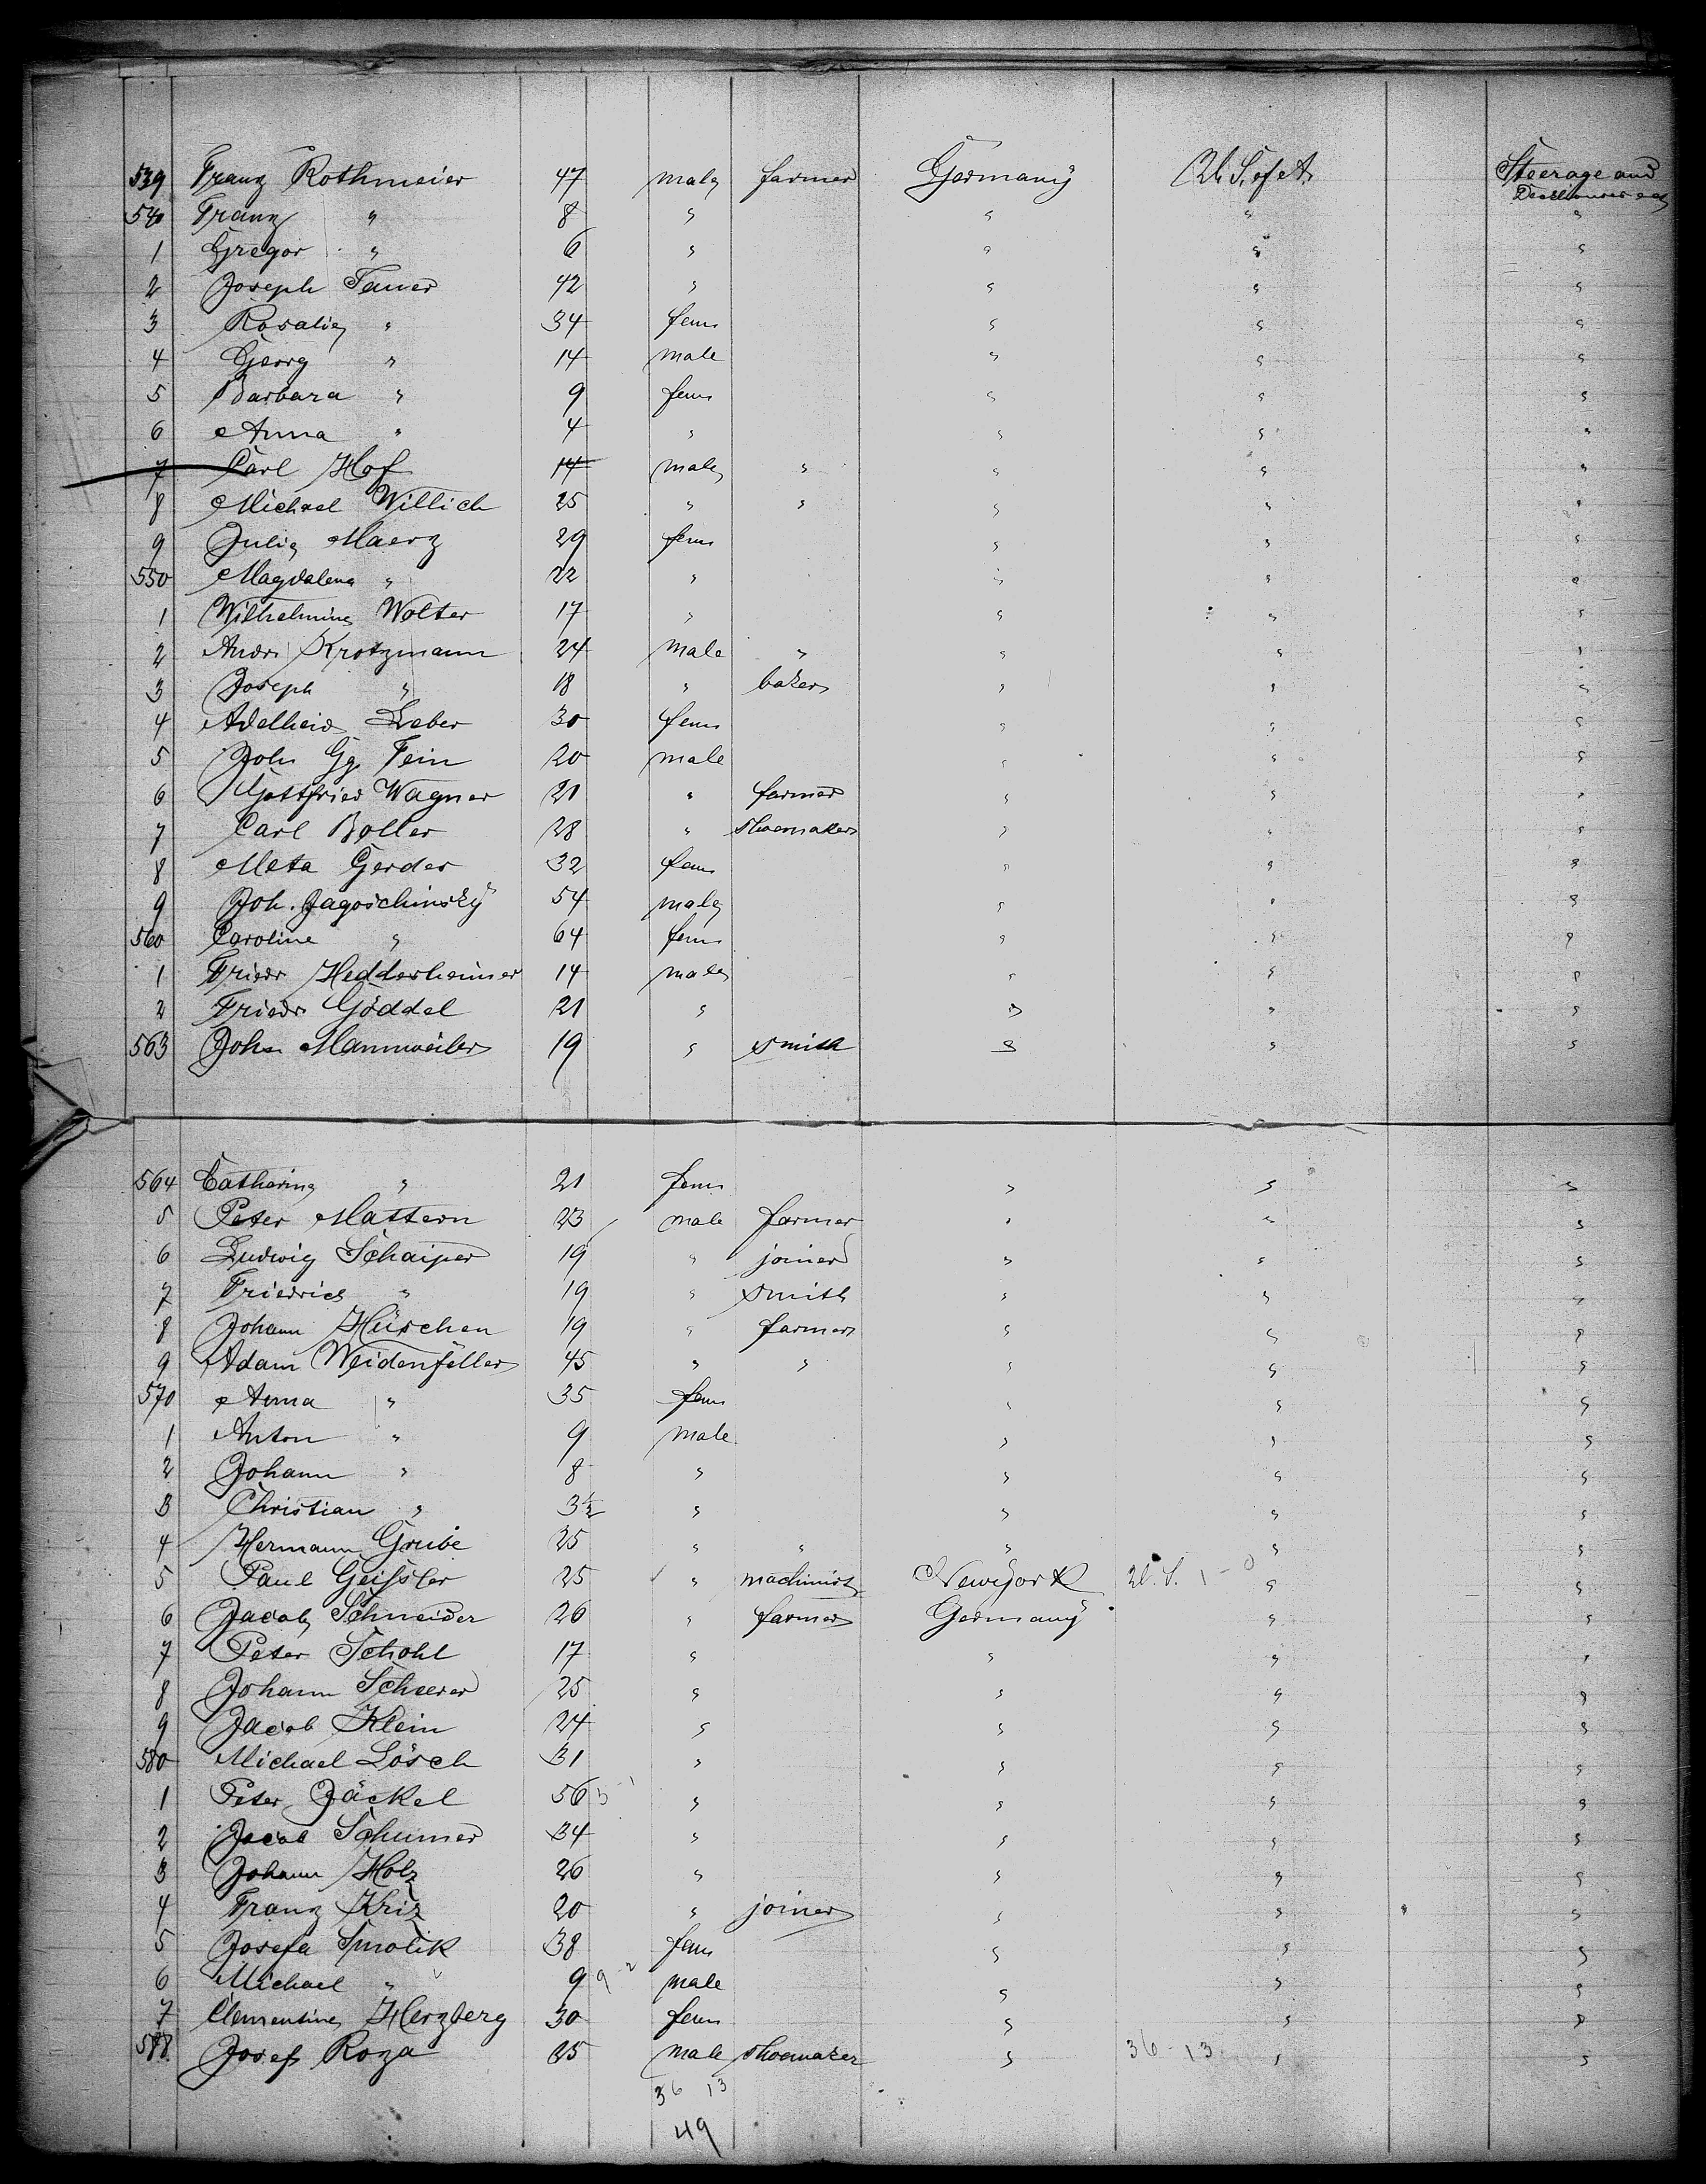 539 Franz Rothmeier 47 male farmer Germany U. S. of A. Steerage and
540 Franz " 8 " " " "
1 Gregor " 6 " " " "
2 Joseph 42 " " " "
3 Rosalie " 34 fem " " "
4 Georg " 14 male " " "
5 Barbara " 9 fem " " "
6 Anna " 4 " " " "
7 Carl Hof 14 male " " " "
8 Michael Willich 25 " " " " "
9 Julie Maerz 29 fem " " "
550 Magdalena " 22 " " " "
1 Wilhelmine Wolter 17 " " " "
2 Andr Krotzmann 24 male " " " "
3 Joseph " 18 " baker " " "
4 Adelheid Leber 30 fem " " "
5 Joh Gg Fein 20 male " " "
6 Gottfried Wagner 21 " farmer " " "
7 Carl Boller 28 " shoemaker " " "
8 Meta Gerder 32 fem " " "
9 Joh. Jagoschinsky 54 male " " "
560 Caroline " 64 fem " " "
1 Friedr Heddesheimer 14 male " " "
2 Friedr Göddel 21 " " " "
563 Joh Mannweiler 19 " smith " " "
564 Catharina " 21 fem " " "
5 Peter Mattern 23 male farmer " " "
6 Ludwig Schaiper 19 " joiner " " "
7 Friedrich " 19 " smith " " "
8 Johann Hüschen 19 " farmer " " "
9 Adam Weidenfeller 45 " " " " "
570 Anna " 35 fem " " "
1 Anton " 9 male " " "
2 Johann " 8 " " " "
3 Christian " 3½ " " " "
4 Hermann Grube 25 " " " " "
5 Paul Geißler 25 " machinist Newyork U. S. 1 - 0 " "
6 Jacob Schneider 26 " farmer Germany " "
7 Peter Schohl 17 " " " "
8 Johann Scheerer 25 " " " "
9 Jacob Klein 24 " " " "
580 Michael Lösch 31 " " " "
1 Peter Jäckel 56 " " " "
2 Jacob Schumer 34 " " " "
3 Johann Holz 26 " " " "
4 Franz Kriz 20 " joiner " " "
5 Josefa Smolik 38 fem " " "
6 Michael " 9 9 - 2 male " " "
7 Clementine Herzberg 30 fem " " "
588 Josef Roza 25 male shoemaker " 36 - 13 " "
36 13
49